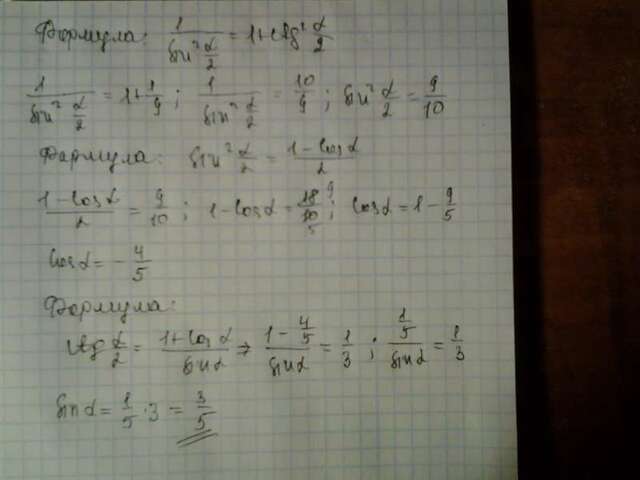 Формула: 1/sin² α/2 = 1+ctg² α/2
1/sin² α/2 = 1+1/9 ; 1/sin² α/2 = 10/9 ; sin² α/2 = 9/10
Формула: sin² α/2 = (1-cos α)/2
(1-cos α)/2 = 9/10 ; 1-cos α = 18/10 9/5 ; cos α = 1 - 9/5
cos α = - 4/5
Формула:
ctg α/2 = (1+cos α)/sin α ⇒ (1 - 4/5)/sin α = 1/3 ; (1/5)/sin α = 1/3
sin α = 1/5 · 3 = 3/5